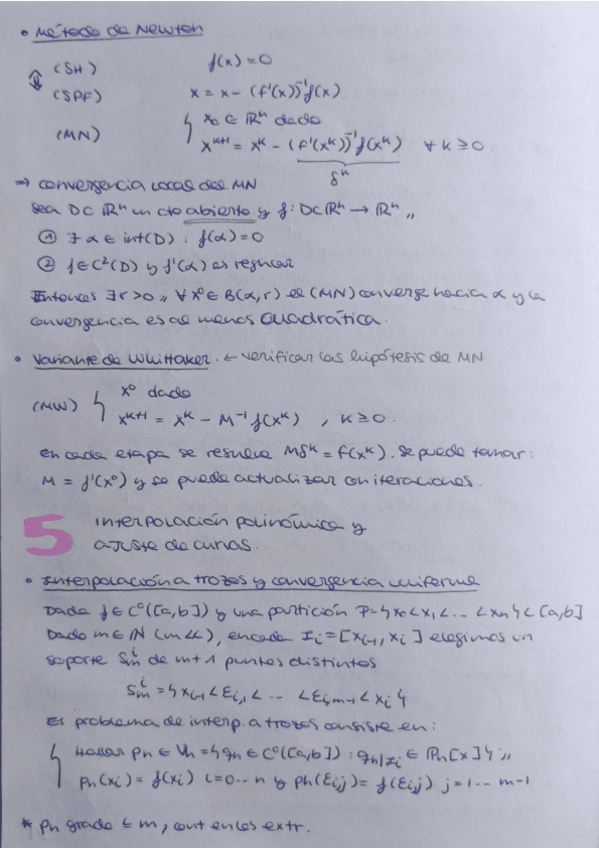 • Método de Newton
(SH) f(x) = 0
⇕
(SPF) x = x - (f'(x))⁻¹ f(x)
(MN) { x₀ ∈ ℝⁿ dado
xᵏ⁺¹ = xᵏ - (f'(xᵏ))⁻¹ f(xᵏ) ∀ k ≥ 0.
δᵏ
⇒ convergencia local del MN
Sea D ⊂ ℝⁿ un cto abierto y f: D ⊂ ℝⁿ → ℝⁿ ,,
① ∃ α ∈ int(D) : f(α) = 0
② f ∈ C²(D) y f'(α) es regular
Entonces ∃ r > 0 ,, ∀ x⁰ ∈ B(α, r) el (MN) converge hacia α y la
convergencia es al menos cuadrática.
• Variante de Whittaker. ← verificar las hipótesis de MN
(MW) { x⁰ dado
xᵏ⁺¹ = xᵏ - M⁻¹ f(xᵏ) , k ≥ 0.
En cada etapa se resuelve Mδᵏ = f(xᵏ). Se puede tomar:
M = f'(x⁰) y se puede actualizar con iteraciones.
5 Interpolación polinómica y
ajuste de curvas.
• Interpolación a trozos y convergencia uniforme
Dada f ∈ C⁰([a,b]) y una partición P = {x₀ < x₁ < ... < xₙ} ⊂ [a,b]
Dado m ∈ ℕ (m <<), en cada Iᵢ = [xᵢ₋₁, xᵢ] elegimos un
soporte Sᵢₘ de m+1 puntos distintos
Sᵢₘ = {xᵢ₋₁ < Ɛᵢ,₁ < ... < Ɛᵢ,ₘ₋₁ < xᵢ}
El problema de interp. a trozos consiste en:
{ Hallar pₕ ∈ Vₕ = {qₕ ∈ C⁰([a,b]) : qₕ|Iᵢ ∈ ℙₙ[x]} ,,
pₕ(xᵢ) = f(xᵢ) i=0...n y pₕ(Ɛᵢⱼ) = f(Ɛᵢⱼ) j=1...m-1
* pₕ grado ≤ m, cont en los extr.